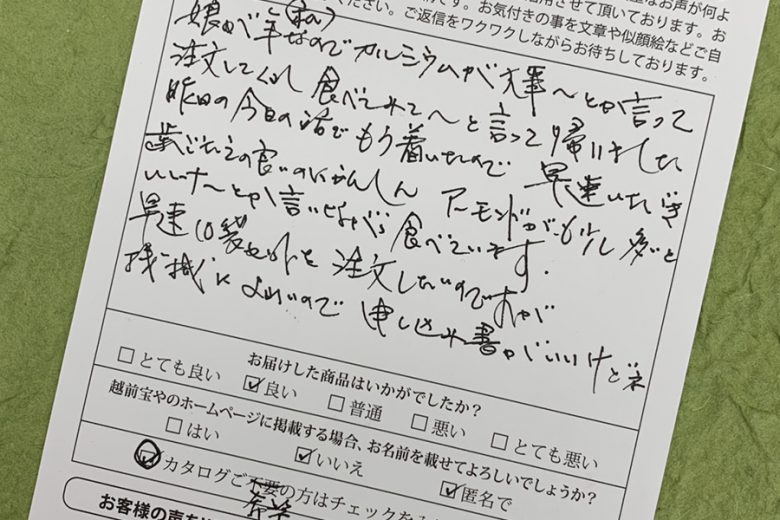 活用させて頂いております。お
ください。お気付きの事を文章や似顔絵などご自
ご返信をワクワクしながらお待ちしております。
娘が年(私)なのでカルシウムが 〜とか言って
注文してくれ 食べてみて〜と言って帰りました
昨日の今日の話でもう着いたので 早速いただき
歯ごたえの良いのにかんしん アーモンドが 多いと
いいナ〜とか言いながら 食べています.
早速10袋セットを 注文したいのですが
機械によわいので 申し込み書がいいけどネ
お届けした商品はいかがでしたか？
□とても良い ☑良い □普通 □悪い □とても悪い
越前宝やのホームページに掲載する場合、お名前を載せてよろしいでしょうか？
□はい ☑いいえ ☑匿名で
☑カタログご不要の方はチェックを
希望
お客様の声を